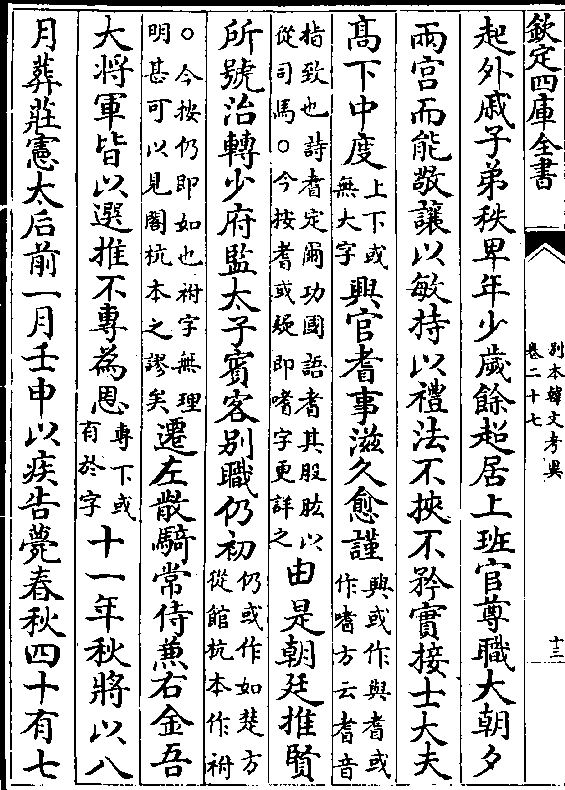 欽定四庫全書
別本韓文考異
卷二十七
十三
起外戚子弟秩卑年少歲餘超居上班官尊職大朝夕
兩宫而能敬讓以敏持以禮法不挾不矜實接士大夫
髙下中度
上下或
無大字
興官耆事滋久愈謹
興或作與耆或
作嗜方云耆音
指致也詩耆定爾功國語耆其股肱以
從司馬○今按耆或疑即嗜字更詳之
由是朝廷推賢
所號治轉少府監太子賓客别職仍初
仍或作如楚方
從館杭本作祔
○今按仍即如也祔字無理
明甚可以見閣杭本之謬矣
遷左散騎常侍兼右金吾
大將軍皆以選推不專為恩
專下或
有於字
十一年秋將以八
月葬莊憲太后前一月壬申以疾告薨春秋四十有七